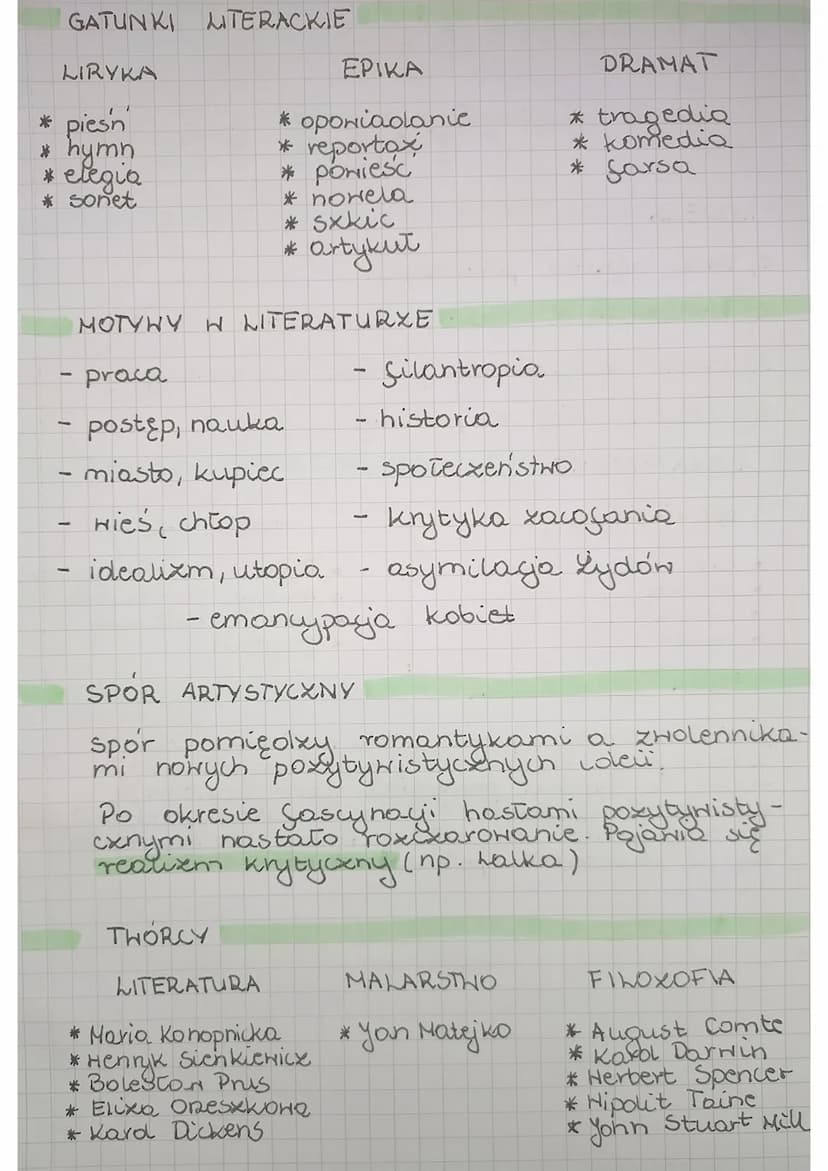 GATUNKI LITERACKIE
LIRYKA EPIKA DRAMAT
* pieśń * opowiadanie * tragedia
* hymn * reportaż * komedia
* elegia * powieść * farsa
* sonet * nowela
* szkic
* artykuł
MOTYWY W LITERATURZE
- praca - filantropia
- postęp, nauka - historia
- miasto, kupiec - społeczeństwo
- wieś, chłop - krytyka zacofania
- idealizm, utopia - asymilacja Żydów
- emancypacja kobiet
SPÓR ARTYSTYCZNY
spór pomiędzy romantykami a zwolennika-
mi nowych pozytywistycznych idei.
Po okresie fascynacji hasłami pozytywisty-
cznymi nastało rozczarowanie. Pojawia się
realizm krytyczny (np. Lalka)
TWÓRCY
LITERATURA MALARSTWO FILOZOFIA
* Maria Konopnicka * Jan Matejko * August Comte
* Henryk Sienkiewicz * Karol Darwin
* Bolesław Prus * Herbert Spencer
* Eliza Orzeszkowa * Hipolit Taine
* Karol Dickens * John Stuart Mill